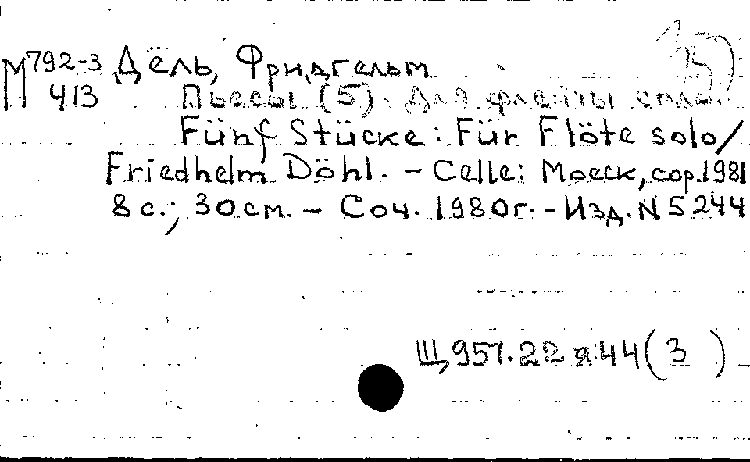 М 792-3 Дёль, Фридгельт
413 Пьесы (5). Для флейты соло.
Fünf Stücke: Für Flöte solo/
Friedhelm Döhl. - Celle: Moeck, cop.1981
8 с.; 30 см. - Соч. 1980г. - Изд. N 5244
Щ957.22я44(3)